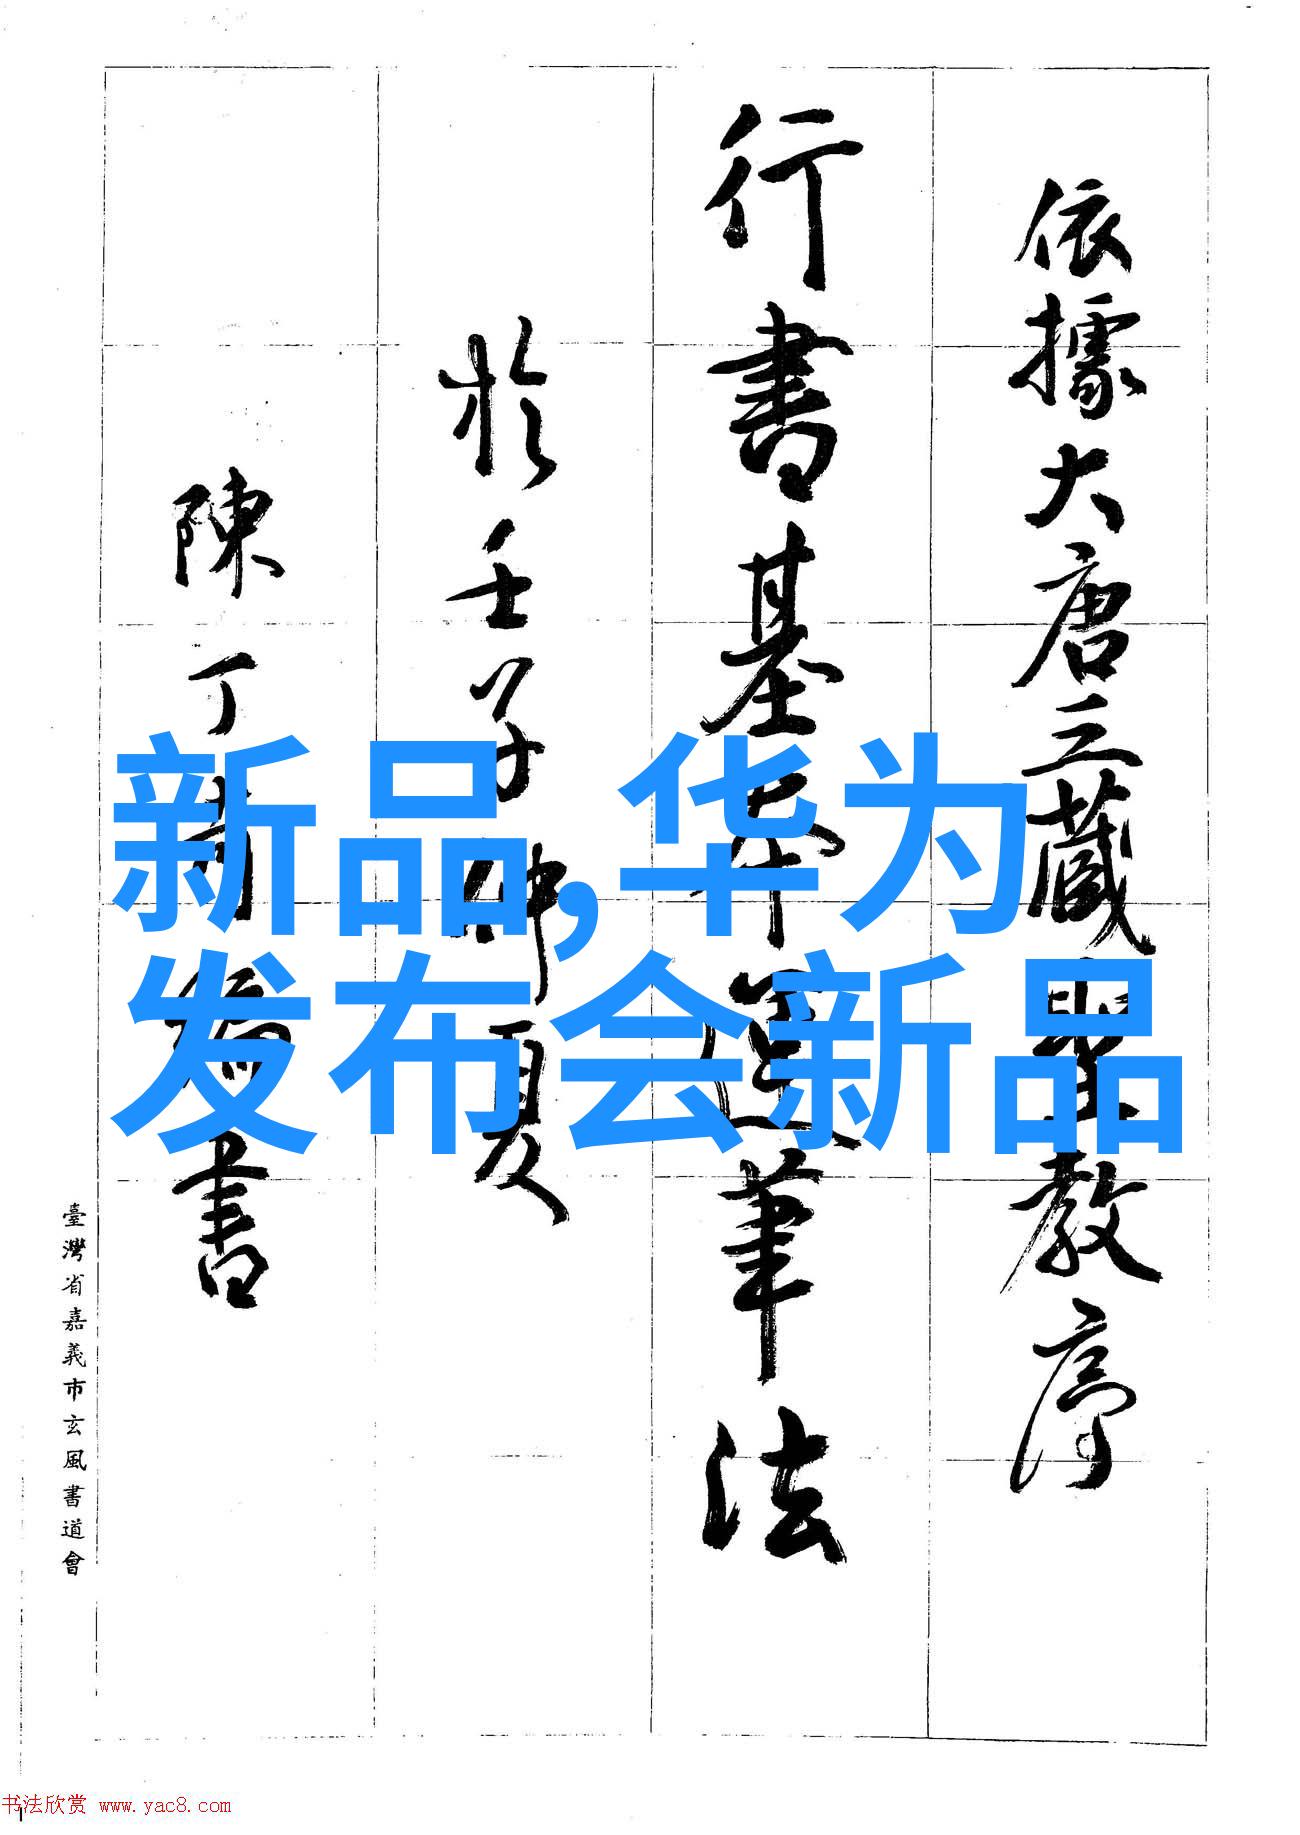 依據大唐三藏聖教序
行書基本運筆法
於壬子仲夏
陳丁奇編書
臺灣省嘉義市玄風書道會
新品,华为
发布会新品
书法欣赏 www.yac8.com
1